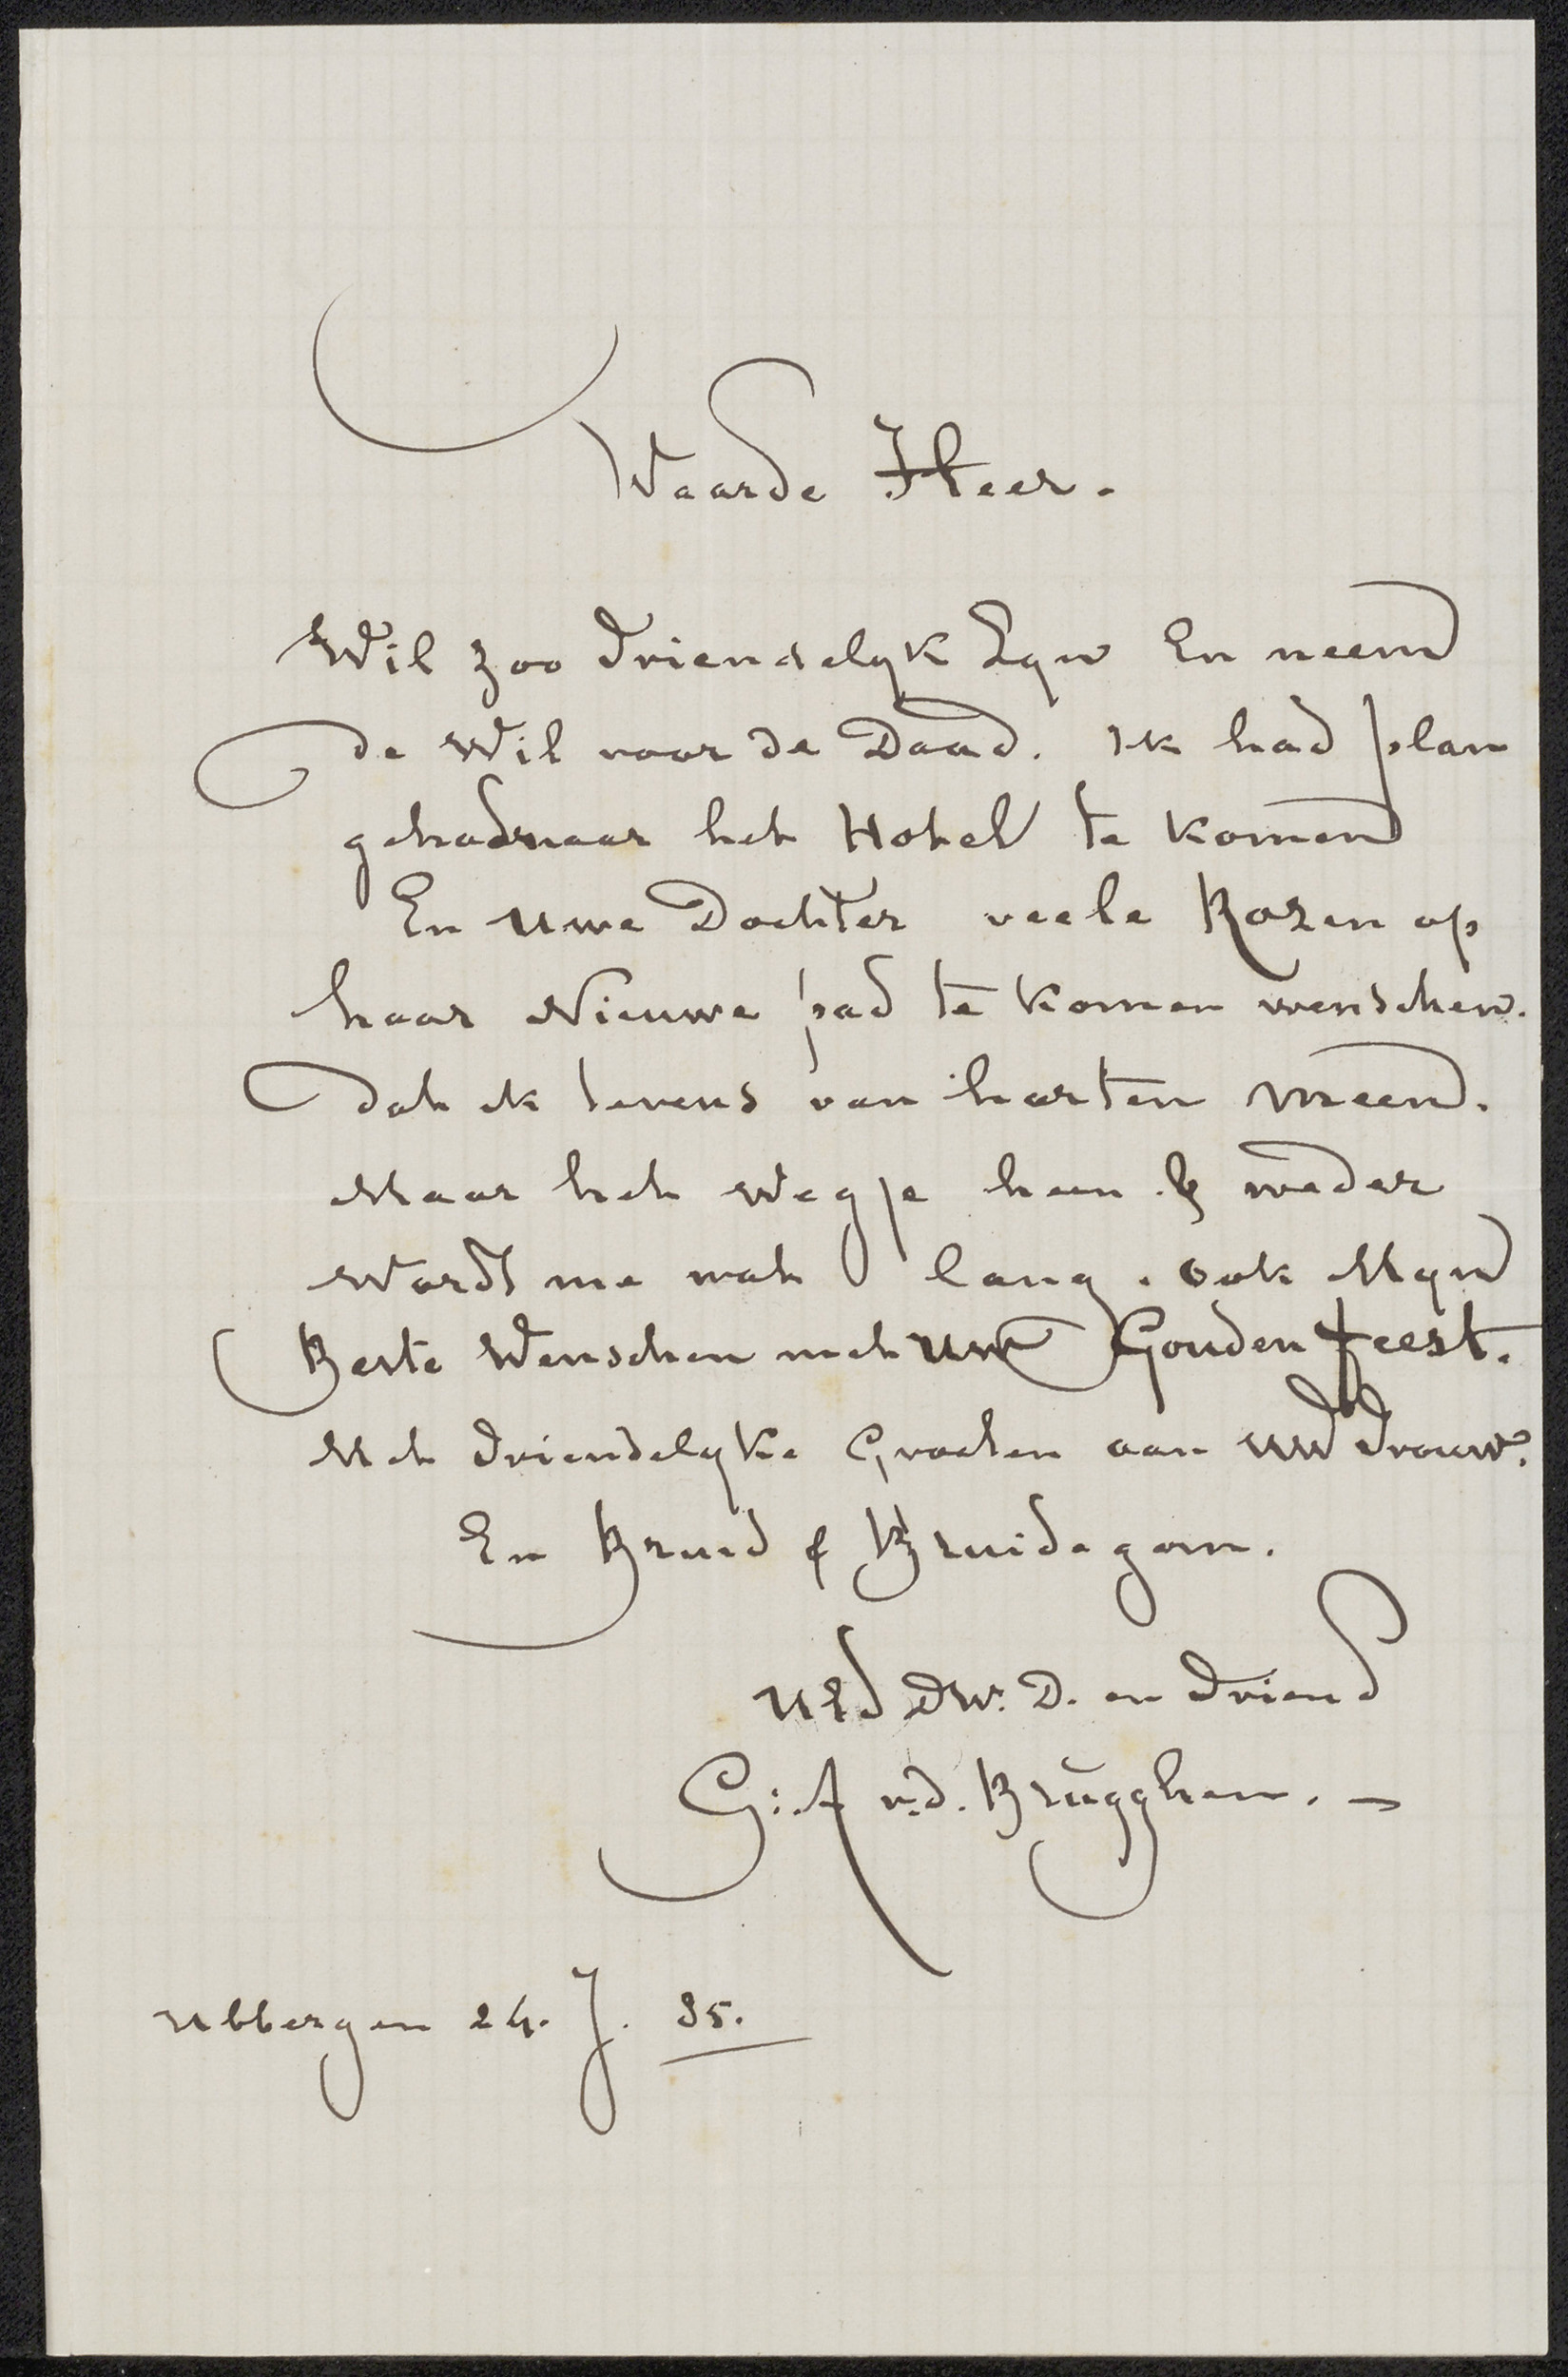 Waarde Heer.
Wil zoo vriendelyk Zyn En neem
de Wil voor de Daad. Ik had plan
gehad naar het Hotel te komen
En Uwe Dochter veele Rozen op
haar Nieuwe pad te komen wenschen.
dat ik tevens van harten meen.
Maar het wegje heen & weder
Wordt me wat lang. ook Myn
Beste Wenschen met Uw Gouden feest.
Met vriendelyke Groeten aan UW vrouw.
En Bruid & Bruidegom.
UEd DW. D. en vriend
G: A v.d. Brugghen. —
Ubbergen 24. J. 85.